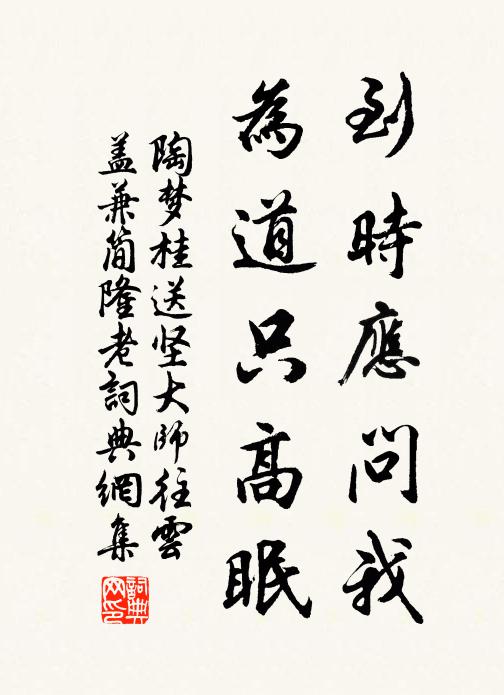 到時應問我
為道只高眠
陶梦桂送坚大師往雲
盖兼简隆老詞典網集
詞典网印